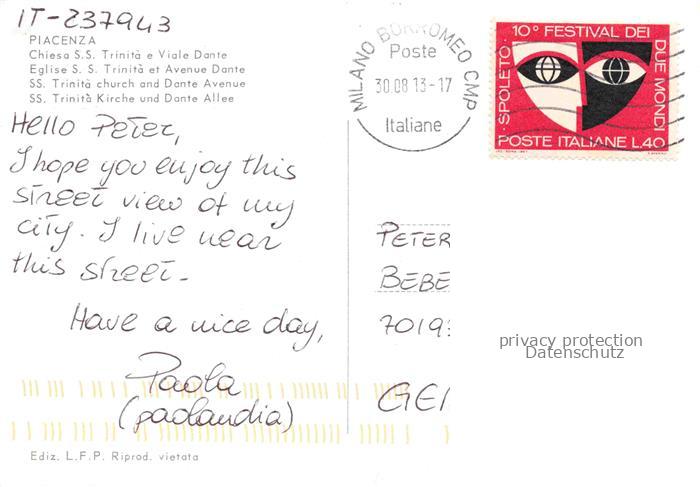 IT-237943
PIACENZA
Chiesa S.S. Trinità e Viale Dante
Eglise S. S. Trinità et Avenue Dante
SS. Trinità church and Dante Avenue
SS. Trinità Kirche und Dante Allee
Hello Peter,
I hope you enjoy this
street view of my
city. I live near
this street.
Have a nice day,
Paola
(paolandia)
Ediz. L.F.P. Riprod. vietata
MILANO BORROMEO CMP
Poste
30.08 13-17
Italiane
10° FESTIVAL DEI
DUE MONDI
SPOLETO
POSTE ITALIANE L.40
PETER
BEBE
70193
GER
privacy protection
Datenschutz